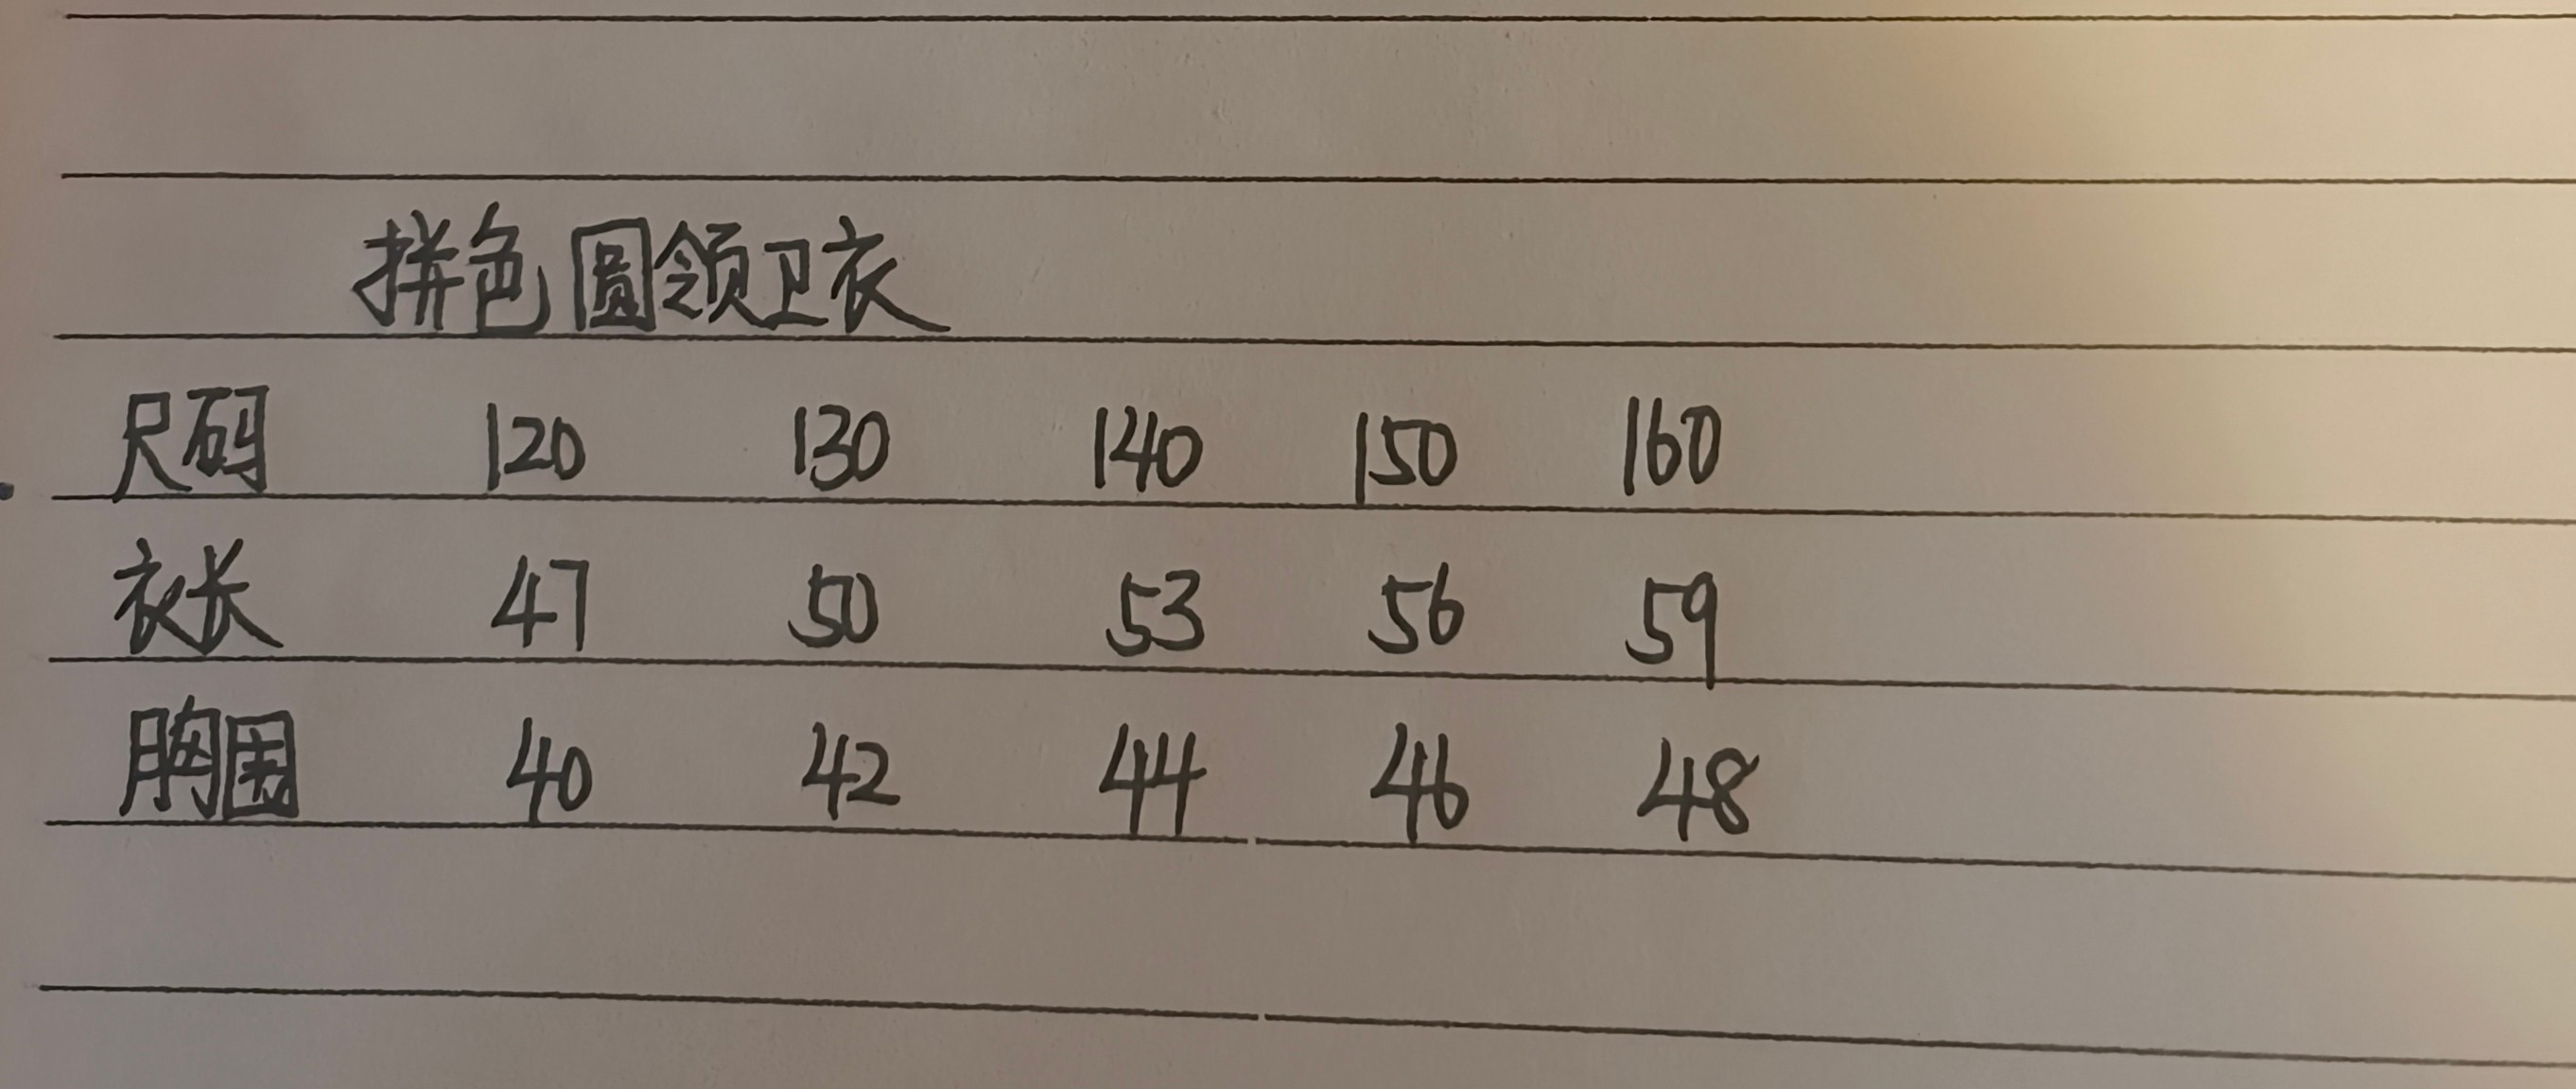 拼色圆领卫衣
尺码 120 130 140 150 160
衣长 47 50 53 56 59
胸围 40 42 44 46 48